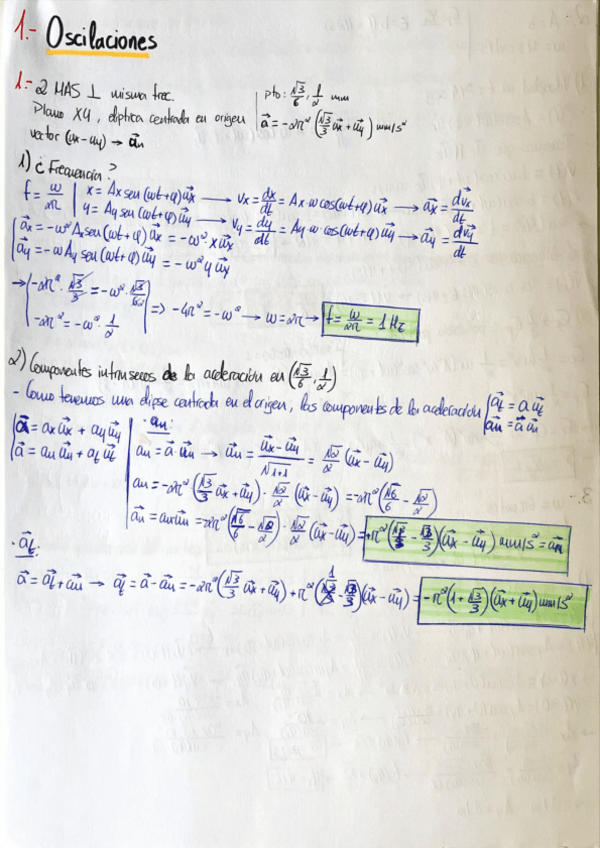 1.- Oscilaciones
1.- 2 MAS ⊥ misma frec.
Plano XY, elíptica centrada en origen
vector (ux-uy) → a⃗n
pto: √3/6, 1/2 mm
a⃗ = -2π² (√3/3 u⃗x + u⃗y) mm/s²
1) ¿Frecuencia?
f = ω/2π | x = Ax sen (ωt+φ) u⃗x → vx = dx/dt = Ax ω cos(ωt+φ) u⃗x → a⃗x = dv⃗x/dt
y = Ay sen (ωt+φ) u⃗y → vy = dy/dt = Ay ω cos(ωt+φ) u⃗y → a⃗y = dv⃗y/dt
a⃗x = -ω² Ax sen (ωt+φ) u⃗x = -ω² · x u⃗x
a⃗y = -ω Ay sen (ωt+φ) u⃗y = -ω² y u⃗y
→ -2π² · √3/3 = -ω² · √3/6
-2π² = -ω² · 1/2
=> -4π² = -ω² → ω = 2π → f = ω/2π = 1 Hz
2) Componentes intrínsecos de la aceleración en (√3/6, 1/2)
- Como tenemos una elipse centrada en el origen, las componentes de la aceleración a⃗t = a u⃗t
a⃗n = a⃗ u⃗n
a⃗ = ax u⃗x + ay u⃗y
a⃗ = an u⃗n + at u⃗t
· an:
an = a⃗ · u⃗n → u⃗n = u⃗x - u⃗y / √1+1 = √2/2 (u⃗x - u⃗y)
an = -2π² (√3/3 u⃗x + u⃗y) · √2/2 (u⃗x - u⃗y) = -2π² (√6/6 - √2/2)
a⃗n = an u⃗n = -2π² (√6/6 - √2/2) · √2/2 (u⃗x - u⃗y) = +π² ( - √3/3) (u⃗x - u⃗y) mm/s² = a⃗n
· a⃗t:
a⃗ = a⃗t + a⃗n → a⃗t = a⃗ - a⃗n = -2π² (√3/3 u⃗x + u⃗y) + π² (1 - √3/3) (u⃗x - u⃗y) = -π² (1 + √3/3) (u⃗x + u⃗y) mm/s²